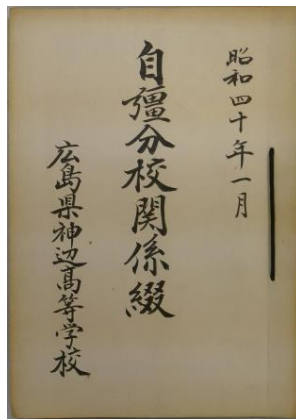 昭和四十年一月
自彊分校関係綴
広島県神辺高等学校